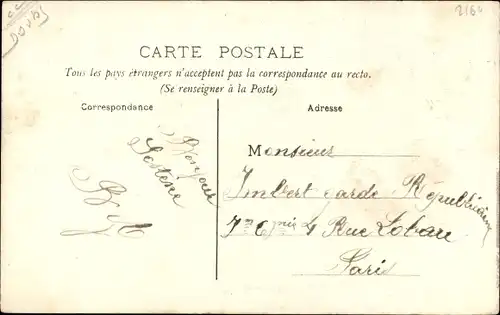 DOUBS
2164
CARTE POSTALE
Tous les pays étrangers n'acceptent pas la correspondance au recto.
(Se renseigner à la Poste)
Correspondance
Adresse
Bonjour
Monsieur
Imbert garde Républicain
7me Cpnie 4 Rue Lobau
Paris